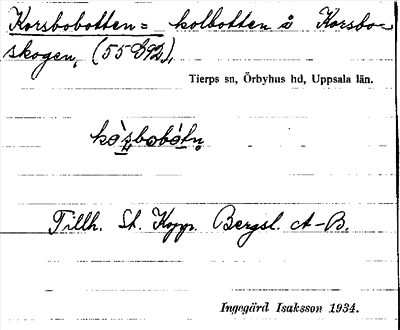 Korsbobotten = kolbotten å Korsbo-
skogen, (55 892),
Tierps sn, Örbyhus hd, Uppsala län.
Tillh. St. Kopp. Bergsl. A-B.
Ingegärd Isaksson 1934.